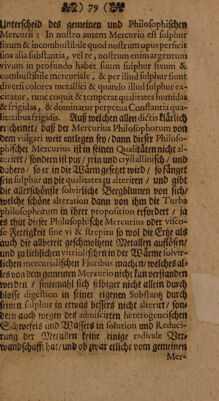 ) 79 (
Unterscheid des gemeinen und Philosophischen
Mercurii: In nostro autem Mercurio est sulphur
fixum & incombustibile quod nostrum opus perficit
sine alia substantia, vel re, nostrum enim argentum
vivum in profundo habet suum sulphur fixum &
combustibile mercuriale, & per illud sulphur fiunt
diversi colores metallici & quando illud sulphur ex-
citatur, tunc coquit & temperat qualitates humidas
& frigidas, & dominatur perpetua Constantia qua-
litatibus frigidis. Auß welchen allen dictis klärlich
erscheinet, daß der Mercurius Philosophorum von
dem vulgari weit entlegen sey / dann dieser Philoso-
phischer Mercurius ist in seinen Qualitäten nicht al-
teriret / sondern ist pur / rein und crystallinisch / und
dahero / so er in die Wärm gesetzt wird / so fänget
sein sulphur an die qualitates zu alteriren / und gibt
die allerschönste solvirliche Bergblumen von sich/
welche schöne alteration dann von ihm die Turba
philosophorum in ihrer proposition erfordert / ja
es thut dieser Philosophische Mercurius oder visco-
se Fettigkeit sine vi & strepitu so wol die Ertze als
auch die allbereit geschmoltzene Metallen auflösen/
und zu lieblichen vitriolischen in der Wärme solvir-
lichen mercurialischen Floribus machen / welches al-
les von dem gemeinen Mercurio nicht kan verstanden
werden / sintemahl sich selbiger nicht allein durch
blosse digestion in seiner eigenen Substantz durch
seinen sulphur in etwas bessers nicht alterirt / son-
dern auch wegen des admiscirten heterogeneischen
Schwefels und Wassers in solution und Reduci-
rung der Metallen keine einige radicale Ver-
wandschafft hat / und ob zwar etliche vom gemeinen
Mer-